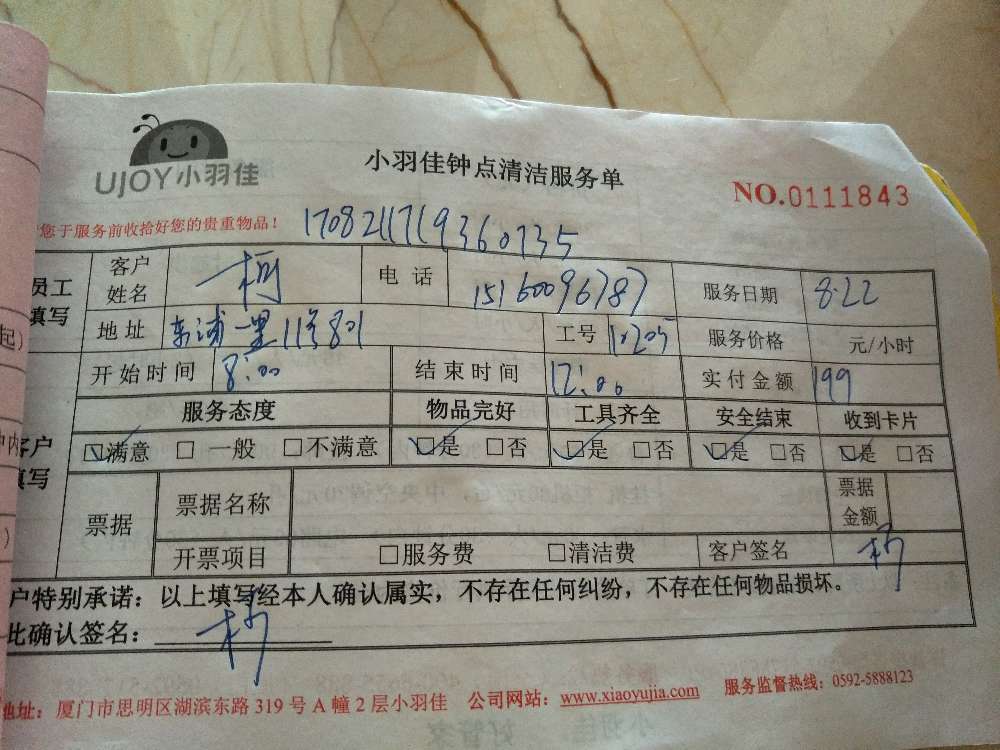 UJOY小羽佳
小羽佳钟点清洁服务单
NO.0111843
您于服务前收拾好您的贵重物品！
1708211719360735
员工填写 客户姓名 柯 电话 15160096787 服务日期 8.22
地址 东浦一里11号801 工号 10205 服务价格 元/小时
开始时间 8:00 结束时间 12:00 实付金额 199
服务态度 物品完好 工具齐全 安全结束 收到卡片
客户填写 ☑满意 □一般 □不满意 ☑是 □否 ☑是 □否 ☑是 □否 ☑是 □否
票据 票据名称 票据金额
开票项目 □服务费 □清洁费 客户签名 柯
户特别承诺：以上填写经本人确认属实，不存在任何纠纷，不存在任何物品损坏。
此确认签名： 柯
地址：厦门市思明区湖滨东路319号A幢2层小羽佳 公司网站：www.xiaoyujia.com 服务监督热线：0592-5888123